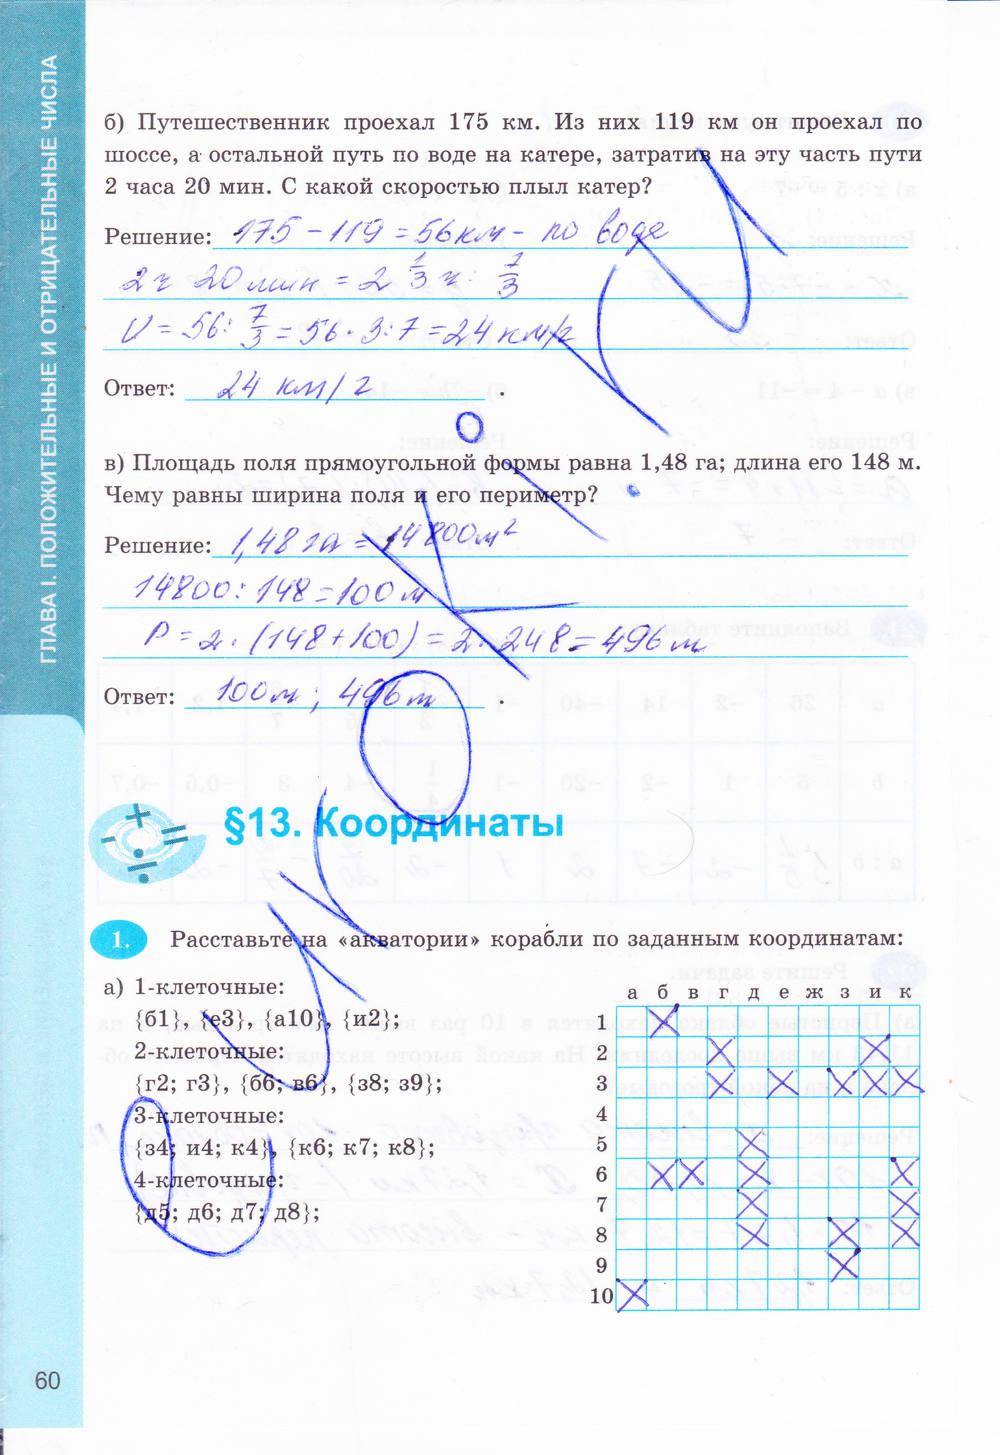 ГЛАВА I. ПОЛОЖИТЕЛЬНЫЕ И ОТРИЦАТЕЛЬНЫЕ ЧИСЛА
б) Путешественник проехал 175 км. Из них 119 км он проехал по
шоссе, а остальной путь по воде на катере, затратив на эту часть пути
2 часа 20 мин. С какой скоростью плыл катер?
Решение: 175 - 119 = 56 км - по воде
2 ч 20 мин = 2 1/3 ч. 7/3
V = 56 : 7/3 = 56 · 3 : 7 = 24 км/ч
Ответ: 24 км/ч.
в) Площадь поля прямоугольной формы равна 1,48 га; длина его 148 м.
Чему равны ширина поля и его периметр?
Решение: 1,48 га = 14800 м²
14800 : 148 = 100 м
P = 2 · (148 + 100) = 2 · 248 = 496 м
Ответ: 100 м ; 496 м.
§13. Координаты
1. Расставьте на «акватории» корабли по заданным координатам:
а) 1-клеточные:
{б1}, {е3}, {а10}, {и2};
2-клеточные:
{г2; г3}, {б6; в6}, {з8; з9};
3-клеточные:
{з4; и4; к4}, {к6; к7; к8};
4-клеточные:
{д5; д6; д7; д8};
а б в г д е ж з и к
1
2
3
4
5
6
7
8
9
10
60